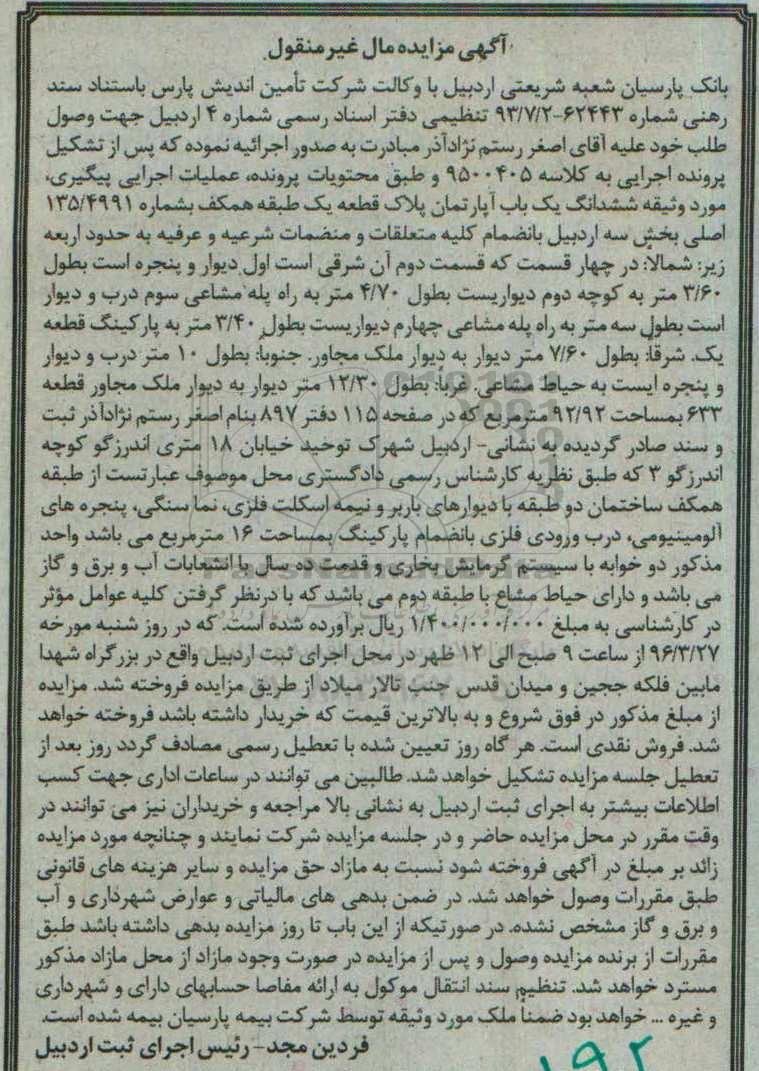 آگهی مزایده مال غیر منقول
بانک پارسیان شعبه شریعتی اردبیل با وکالت شرکت تأمین اندیش پارس باستناد سند
رهنی شماره ۶۲۴۴۳-۹۳/۷/۲ تنظیمی دفتر اسناد رسمی شماره ۴ اردبیل جهت وصول
طلب خود علیه آقای اصغر رستم نژادآذر مبادرت به صدور اجرائیه نموده که پس از تشکیل
پرونده اجرایی به کلاسه ۹۵۰۰۴۰۵ و طبق محتویات پرونده، عملیات اجرایی پیگیری،
مورد وثیقه ششدانگ یک باب آپارتمان پلاک قطعه یک طبقه همکف بشماره ۱۳۵/۴۹۹۱
اصلی بخش سه اردبیل بانضمام کلیه متعلقات و منضمات شرعیه و عرفیه به حدود اربعه
زیر: شمالاً: در چهار قسمت که قسمت دوم آن شرقی است اول دیوار و پنجره است بطول
۳/۶۰ متر به کوچه دوم دیواریست بطول ۴/۷۰ متر به راه پله مشاعی سوم درب و دیوار
است بطول سه متر به راه پله مشاعی چهارم دیواریست بطول ۳/۴۰ متر به پارکینگ قطعه
یک. شرقاً: بطول ۷/۶۰ متر دیوار به دیوار ملک مجاور. جنوباً: بطول ۱۰ متر درب و دیوار
و پنجره ایست به حیاط مشاعی. غرباً: بطول ۱۲/۳۰ متر دیوار به دیوار ملک مجاور قطعه
۶۳۳ بمساحت ۹۲/۹۲ مترمربع که در صفحه ۱۱۵ دفتر ۸۹۷ بنام اصغر رستم نژادآذر ثبت
و سند صادر گردیده به نشانی- اردبیل شهرک توحید خیابان ۱۸ متری اندرزگو کوچه
اندرزگو ۳ که طبق نظریه کارشناس رسمی دادگستری محل موصوف عبارتست از طبقه
همکف ساختمان دو طبقه با دیوارهای باربر و نیمه اسکلت فلزی، نما سنگی، پنجره های
آلومینیومی، درب ورودی فلزی بانضمام پارکینگ بمساحت ۱۶ مترمربع می باشد واحد
مذکور دو خوابه با سیستم گرمایش بخاری و قدمت ده سال با انشعابات آب و برق و گاز
می باشد و دارای حیاط مشاع با طبقه دوم می باشد که با درنظر گرفتن کلیه عوامل مؤثر
در کارشناسی به مبلغ ۱/۴۰۰/۰۰۰/۰۰۰ ریال برآورده شده است. که در روز شنبه مورخه
۹۶/۳/۲۷ از ساعت ۹ صبح الی ۱۲ ظهر در محل اجرای ثبت اردبیل واقع در بزرگراه شهدا
مابین فلکه ججین و میدان قدس جنب تالار میلاد از طریق مزایده فروخته شد. مزایده
از مبلغ مذکور در فوق شروع و به بالاترین قیمت که خریدار داشته باشد فروخته خواهد
شد. فروش نقدی است. هر گاه روز تعیین شده با تعطیل رسمی مصادف گردد روز بعد از
تعطیل جلسه مزایده تشکیل خواهد شد. طالبین می توانند در ساعات اداری جهت کسب
اطلاعات بیشتر به اجرای ثبت اردبیل به نشانی بالا مراجعه و خریداران نیز می توانند در
وقت مقرر در محل مزایده حاضر و در جلسه مزایده شرکت نمایند و چنانچه مورد مزایده
زائد بر مبلغ در آگهی فروخته شود نسبت به مازاد حق مزایده و سایر هزینه های قانونی
طبق مقررات وصول خواهد شد. در ضمن بدهی های مالیاتی و عوارض شهرداری و آب
و برق و گاز مشخص نشده. در صورتیکه از این باب تا روز مزایده بدهی داشته باشد طبق
مقررات از برنده مزایده وصول و پس از مزایده در صورت وجود مازاد از محل مازاد مذکور
مسترد خواهد شد. تنظیم سند انتقال موکول به ارائه مفاصا حسابهای دارای و شهرداری
و غیره ... خواهد بود ضمناً ملک مورد وثیقه توسط شرکت بیمه پارسیان بیمه شده است.
فردین مجد- رئیس اجرای ثبت اردبیل
۱۹۲